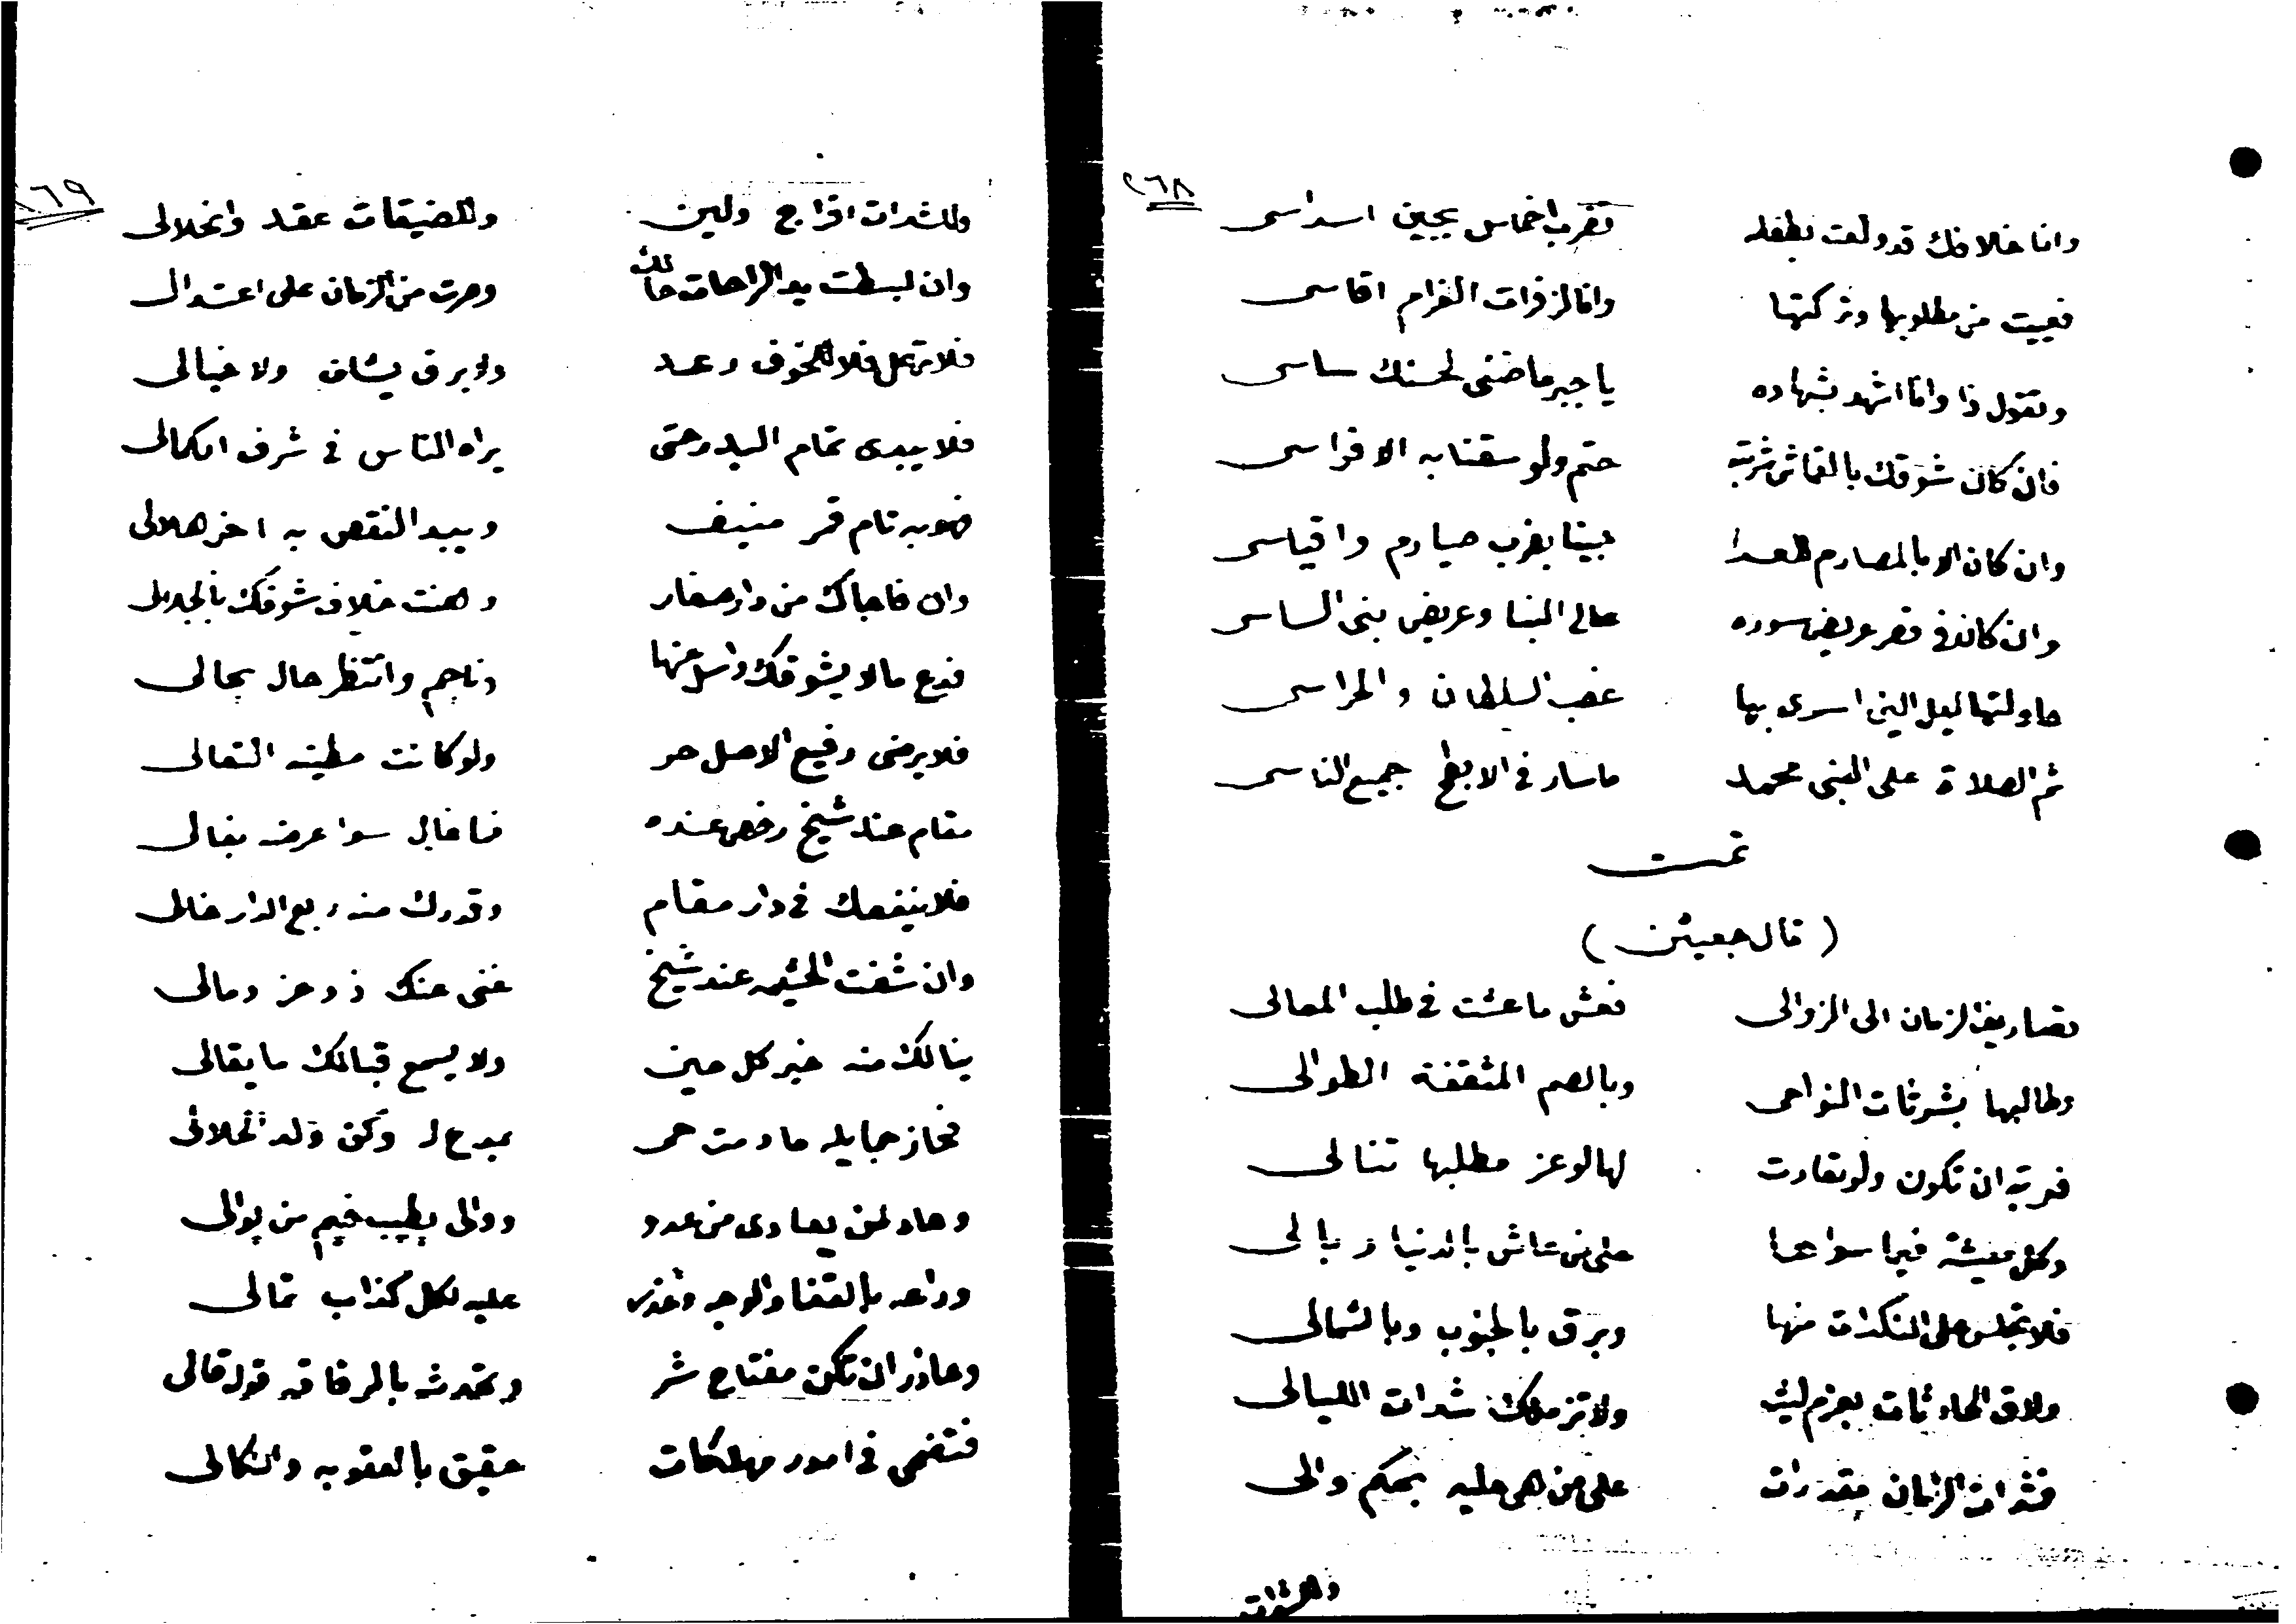 ٢٦٨
وانا خلافك قد ولعت بطفله تضرب اخماس بجين اسداسى
فعييت من مطلوبها وتركتها وانا لزفرات الغرام اقاسى
وتقول ذا وانا اشهد بشهاده يا جبر ما ضنى لحسنك ساسى
فان كان شوقك بالقماش شريته حتم ولو سقنا به الافراسى
وان كان الا بالمصارم للعدا جبينا بضرب صيارم واقياسى
وان كان فى قصر عريض سوره عالى البنا وعريض بنى الساسى
حاولتها ليل الين اسرى بها غصب السلطان والحراسى
ثم الصلاة على النبى محمد ما سار فى الابطح جميع الناسى
تمت
( قال جعيثن )
تصاريف الزمان الى الزوالى فعش ما عشت فى طلب المعالى
وطالبها بشرثات النواحى وبالصم المثقفة الطوالى
ان تكون ولو تعادت لها لو عز مطلبها تنالى
وكل معيشة فيها سواها على من عاش بالدنيا وبالى
فلا تجلس على النكدات منها وبرق بالجنوب وبالشمالى
ولاق الحادثات بعزم ليث ولا تزملك شدات الليالى
فشدات الزمان مقدرات على من هى عليه بحكم والى
وللشدات
٢٦٩
وللشدات افراج ولين وللضيقات عقد وانحلالى
وان بسطت يد الراحات حالك وصرت من الزمان على اعتدال
فلا للخوف رعد ولا برق يشاف ولا خيالى
فلا يبدى تمام البدر حتى يراه الناس فى شرف الكمالى
ضو به تام قمر منيف ويبد النقص به اخر هلالى
وان فاجاك من دار صغار وهنت خلاف شوفك
فدع مالا يشوقك واسل عنها وناجم وانتظر حال بحالى
فلا يرضى رفيع الاصل حر ولو كانت مطيته التعالى
مقام عند شيخ رخص عنده فما غال سوا عرضه بغالى
فلا ينفعك فى دار مقام وقدرك منه ربع الدار خالى
وان شفت الحشيمه عند شيخ غنى عنك ذو عز ومالى
ينالك منه خير كل حين ولا يسمع قبالك ما يقالى
فجاز جمايله ما دمت حى
وعاد لمن يعادى من عدو ووالى بطيب خيم من يوالى
بالقفا والوجه عليه لكل كذاب تمالى
وحاذر ان تكن مفتاح شر وتحدث بالرفاقه قول قالى
فتضحى فى امور مهلكات حقيق بالعقوبه والنكالى